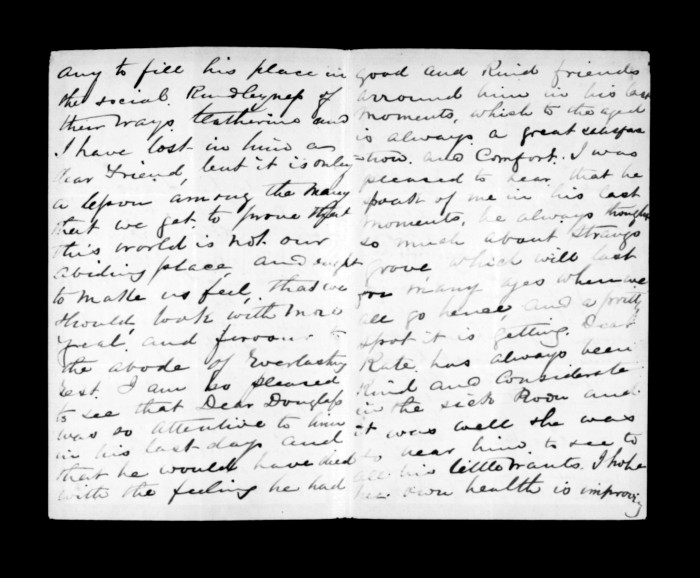 any to fill his place in
the social Kindleyness of
their ways. Catherine and
I have lost in him a
dear Friend, but it is only
a lesson among the many
that we get to prove that
this world is not our
abiding place, and ought
to make us feel, that we
should, look with more
great and to
the abode of Everlasting
rest. I am so pleased
to see that Dear Douglas
was so attentive to him
in his last days and
that he would have died
with the feeling he had
good and Kind friends
arround him in his last
moments, which to the aged
is always a great satisfac
-tion. and Comfort. I was
pleased to hear that he
spoak of me in his last
moments, he always thought
so much about
Grove which will last
for many ages when we
all go hence, and a pretty
spot it is getting. Dear
Kate. has always been
Kind and Considerate
in the sick Room and
it was well she was
to near him to see to
all his little wants. I hope
her own health is improving